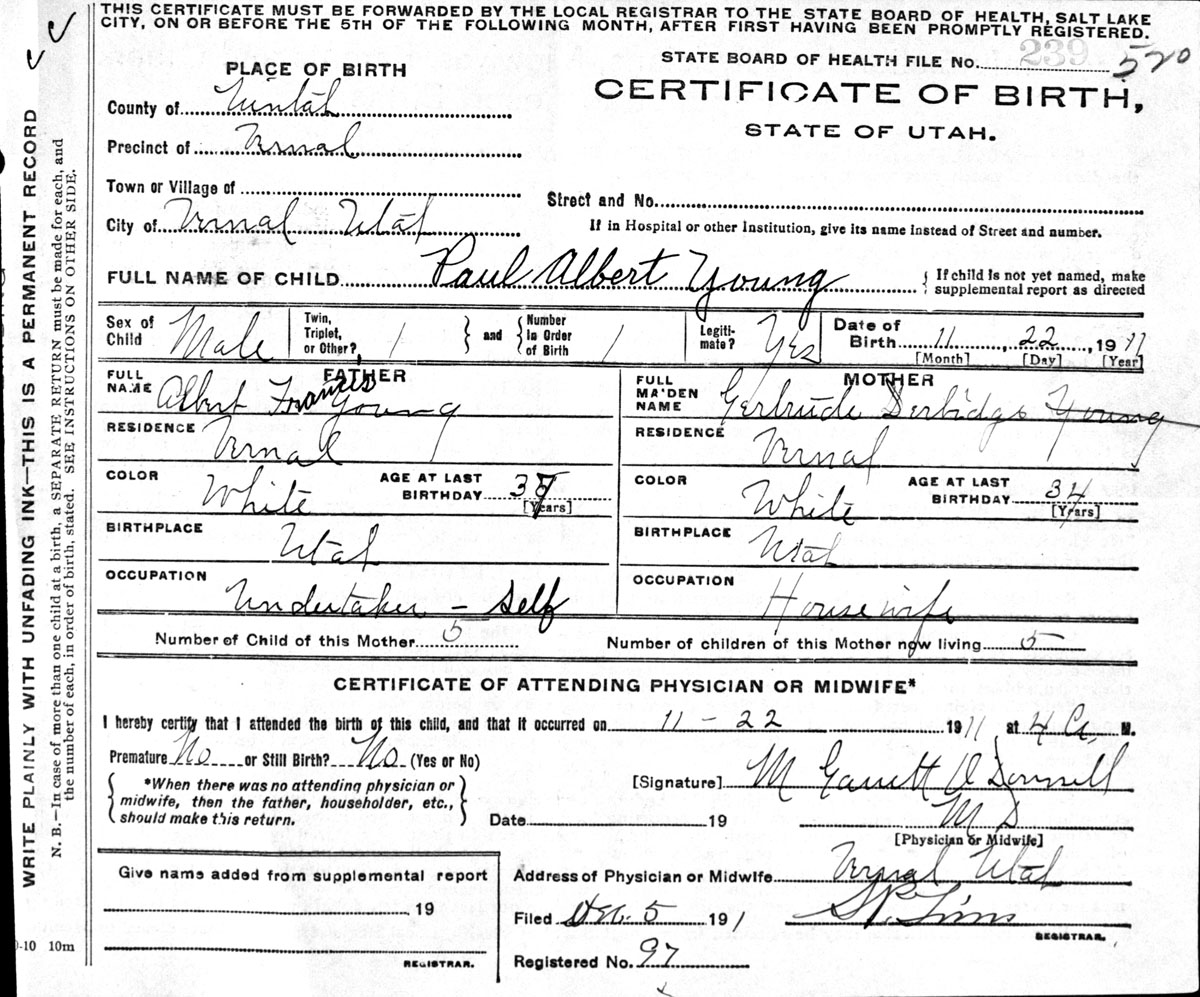 THIS CERTIFICATE MUST BE FORWARDED BY THE LOCAL REGISTRAR TO THE STATE BOARD OF HEALTH, SALT LAKE
CITY, ON OR BEFORE THE 5TH OF THE FOLLOWING MONTH, AFTER FIRST HAVING BEEN PROMPTLY REGISTERED.
WRITE PLAINLY WITH UNFADING INK—THIS IS A PERMANENT RECORD
N. B.—In case of more than one child at a birth, a SEPARATE RETURN must be made for each, and
the number of each, in order of birth, stated. SEE INSTRUCTIONS ON OTHER SIDE.
STATE BOARD OF HEALTH FILE No. 239 520
CERTIFICATE OF BIRTH,
STATE OF UTAH.
PLACE OF BIRTH
County of Uintah
Precinct of Vernal
Town or Village of
Street and No.
City of Vernal Utah
If in Hospital or other Institution, give its name instead of Street and number.
FULL NAME OF CHILD Paul Albert Young
{ If child is not yet named, make
supplemental report as directed
Sex of Child Male
Twin, Triplet, or Other? 1 } and { Number In Order of Birth 1
Legiti-mate? Yes
Date of Birth 11, 22, 1911
[Month] [Day] [Year]
FATHER
FULL NAME Albert Francis Young
RESIDENCE Vernal
COLOR White AGE AT LAST BIRTHDAY 37 [Years]
BIRTHPLACE Utah
OCCUPATION Undertaker – Self
MOTHER
FULL MAIDEN NAME Gertrude Derbidge Young
RESIDENCE Vernal
COLOR White AGE AT LAST BIRTHDAY 34 [Years]
BIRTHPLACE Utah
OCCUPATION Housewife
Number of Child of this Mother 5 Number of children of this Mother now living 5
CERTIFICATE OF ATTENDING PHYSICIAN OR MIDWIFE*
I hereby certify that I attended the birth of this child, and that it occurred on 11 – 22 1911, at 4 a. M.
Premature No or Still Birth? No (Yes or No)
{ *When there was no attending physician or
midwife, then the father, householder, etc.,
should make this return. }
[Signature] M Garrett O Donnell
Date 19 M D
[Physician or Midwife]
Give name added from supplemental report
, 19
REGISTRAR.
0-10 10m
Address of Physician or Midwife Vernal Utah
Filed Dec. 5 1911
REGISTRAR.
Registered No. 97